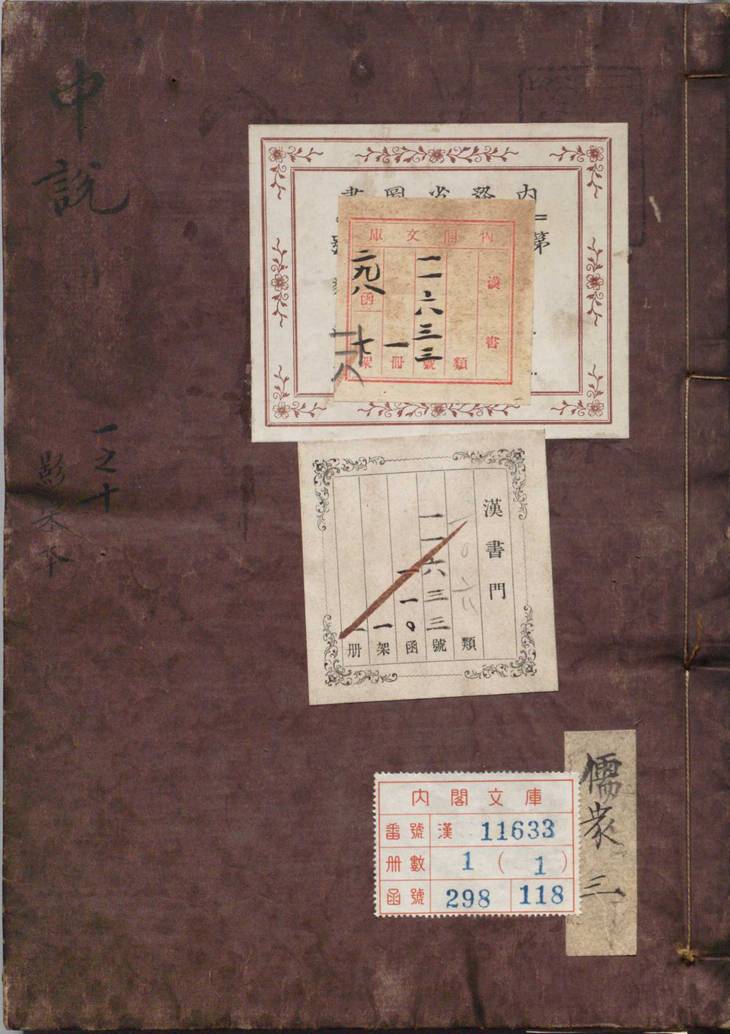 中說
一之十
內務省圖書
第
內閣文庫
漢書
類
一一六三三號
一冊
二九八函
架
漢書門
類
一一六三三號
一一〇函
一架
一册
儒家 三
內閣文庫
番號 漢 11633
册數 1 (1)
函號 298 118